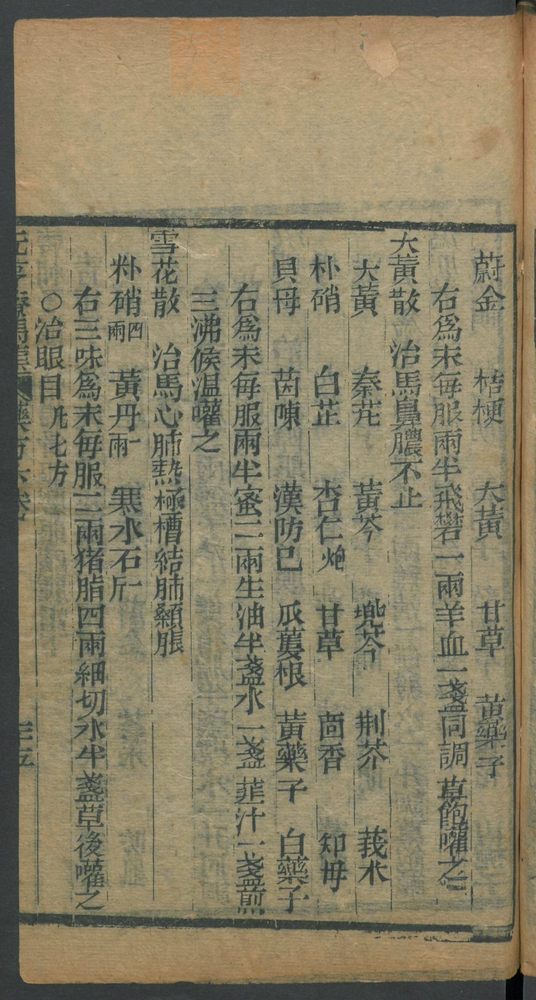 蔚金 桔梗 大黃 甘草 黃藥子
右爲末每服兩半飛礬一兩羊血一盞同調草飽嚾之
大黃散 治馬鼻膿不止
大黃 秦艽 黃芩 兠苓 荆芥 莪朮
朴硝 白芷 杏仁炮 甘草 茴香 知毋
貝母 茵陳 漢防巳 瓜蔞根 黃藥子 白藥子
右爲末每服兩半蜜二兩生油半盞水一盞韮汁一盞煎
三沸候温嚾之
雪花散 治馬心肺熱極槽結肺顙脹
朴硝四兩 黃丹一兩 寒水石一斤
右三味爲末每服二兩猪脂四兩細切水半盞草後嚾之
○治眼目凡七方
元亨療馬集 藥方下卷 三五